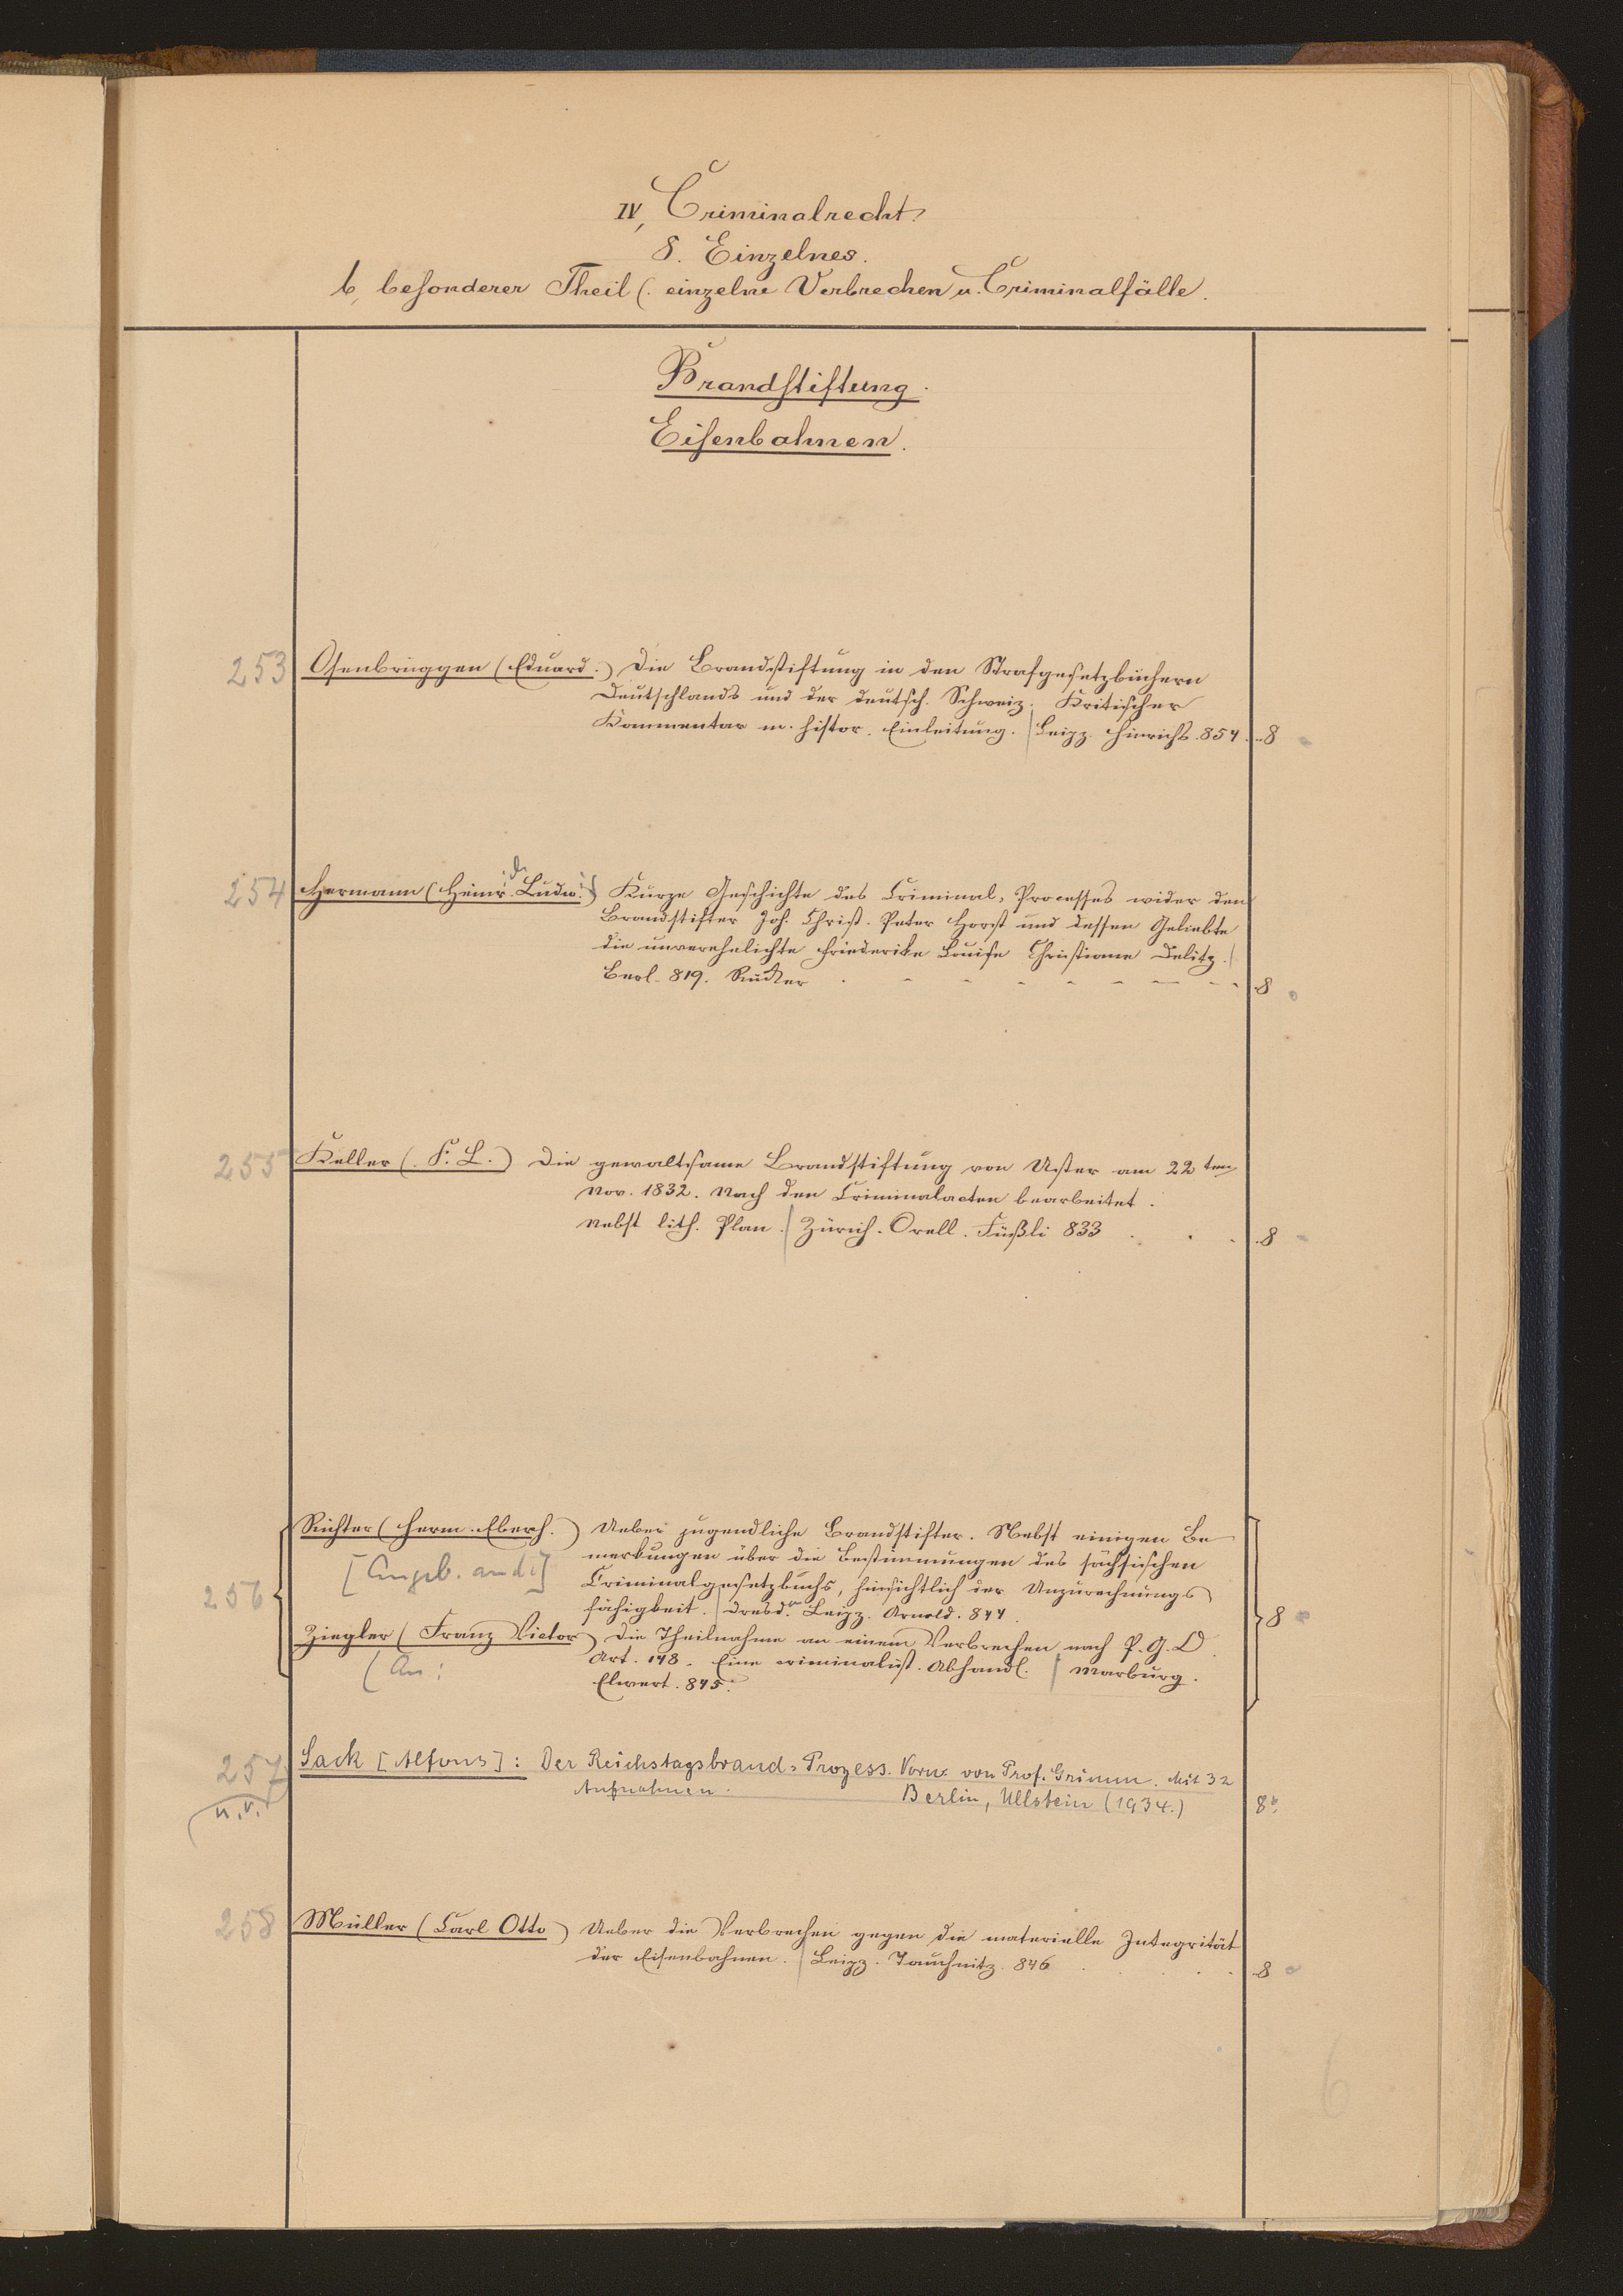 IV, Criminalrecht.
8. Einzelnes.
b, besonderer Theil (. einzelne Verbrechen u. Criminalfälle.
Brandstiftung.
Eisenbahnen.
253 Osenbrüggen (Eduard.) Die Brandstiftung in den Strafgesetzbüchern
Deutschlands und der deutsch. Schweiz. Kritischer
Kommentar m. histor. Einleitung. | Leipz. Hinrichs. 854. 8
254 Hermann (Heinr. Ludw.) Kurze Geschichte des Criminal-Processes wider den
Brandstifter Joh. Christ. Peter Horst und dessen Geliebte
die unverehelichte Friederike Louise Christiane Delitz. |
Berl. 819. Rücker 8
255 Keller (. F. L.) Die gewaltsame Brandstiftung von Uster am 22 ten
Nov. 1832. Nach den Criminalacten bearbeitet.
Nebst lith. Plan. | Zürich. Orell. Füßli 833 8
Richter (Herm. Eberh.) Ueber jugendliche Brandstifter. Nebst einigen Be
[Angeb. and:] merkungen über die Bestimmungen des sächsischen
256 Criminalgesetzbuchs, hinsichtlich der Unzurechnungs
fähigkeit. | Dresd. u. Leipz. Arnold. 844. 8
Ziegler (Franz Victor) Die Theilnahme an einem Verbrechen nach P. G. O.
(An: Art. 148. Eine criminalist. Abhandl. | Marburg.
Elwert. 845.
257 Sack [Alfons]: Der Reichstagsbrand-Prozess. Vorw. von Prof. Grimm. Mit 32
n.v. Aufnahmen. Berlin, Ullstein (1934.) 8°
258 Müller (Carl Otto) Ueber die Verbrechen gegen die materielle Integrität
der Eisenbahnen. | Leipz. Tauchnitz. 846 8
6